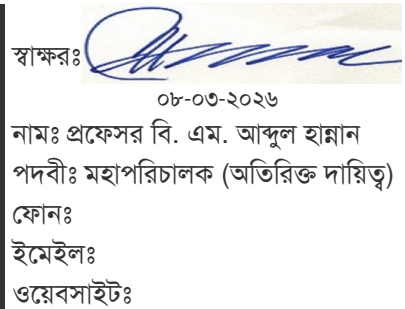 স্বাক্ষরঃ
০৮-০৩-২০২৬
নামঃ প্রফেসর বি. এম. আব্দুল হান্নান
পদবীঃ মহাপরিচালক (অতিরিক্ত দায়িত্ব)
ফোনঃ
ইমেইলঃ
ওয়েবসাইটঃ